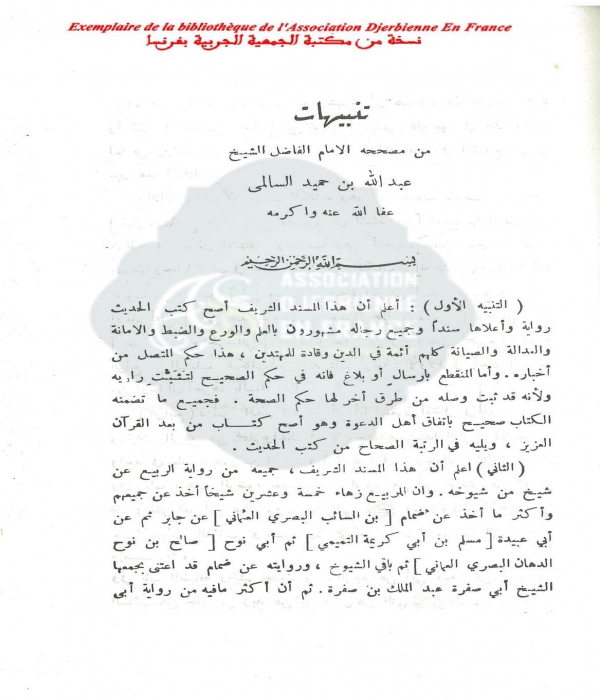 Exemplaire de la bibliothèque de l'Association Djerbienne En France
نسخة من مكتبة الجمعية الجربية بفرنسا
تنبيهات
من مصححه الامام الفاضل الشيخ
عبدالله بن حميد السالمى
عفا الله عنه واكرمه
بسم الله الرحمن الرحيم
( التنبيه الأول ) : أعلم أن هذا المسند الشريف أصح كتب الحديث
رواية وأعلاها سنداً وجميع رجاله مشهورون بالعلم والورع والضبط والامانة
والعدالة والصيانة كلهم أئمة في الدين وقادة للمهتدين ، هذا حكم المتصل من
أخباره . وأما المنقطع بارسال أو بلاغ فانه في حكم الصحيح لتثبت راويه
ولأنه قد ثبت وصله من طرق أخر لها حكم الصحة . فجميع ما تضمنه
الكتاب صحيح باتفاق أهل الدعوة وهو أصح كتاب من بعد القرآن
العزيز ، ويليه في الرتبة الصحاح من كتب الحديث .
( الثاني ) اعلم أن هذا المسند الشريف ، جميعه من رواية الربيع عن
شيخ من شيوخه . وان للربيع زهاء خمسة وعشرين شيخاً أخذ عن جميعهم
وأكثر ما أخذ عن ضمام [ بن السائب البصري العماني ] عن جابر ثم عن
أبي عبيدة [ مسلم بن أبي كريمة التميمي ] ثم أبي نوح [ صالح بن نوح
الدهان البصري العماني ] ثم باقي الشيوخ ، وروايته عن ضمام قد اعتنى بجمعها
الشيخ أبي صفرة عبد الملك بن صفرة . ثم أن أكثر مافيه من رواية أبي
ASSOCIATION